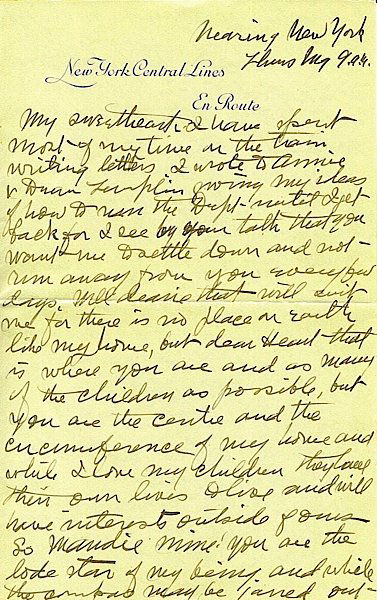 Nearing New York
Thurs Mg 9 a.m.
New York Central Lines
En Route
My sweetheart, I have spent
most of my time on the train
writing letters. I wrote to Annie
& Dean giving my ideas
of how to run the Dept. until I get
back for I see by your talk that you
want me to settle down and not
run away from you every few
days. Well dearie that will suit
me for there is no place on earth
like my home, but dear Heart that
is where you are and as many
of the children as possible, but
you are the centre and the
circumference of my home and
while I love my children they have
their own lives to live and will
have interests outside of ours
So Mandie mine you are the
lode star of my being and while
the compass may be out-